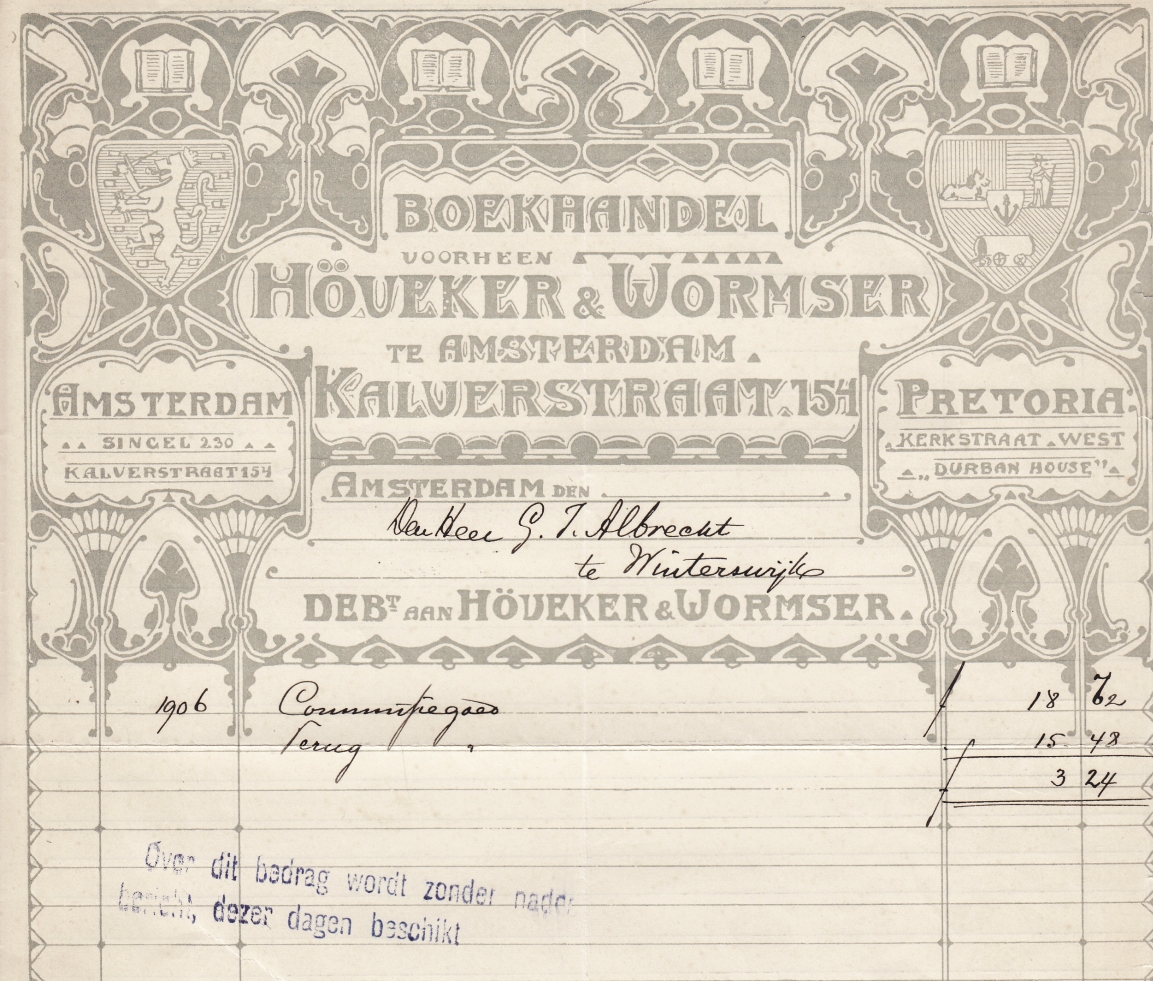 BOEKHANDEL
VOORHEEN
HÖVEKER & WORMSER
TE AMSTERDAM.
KALVERSTRAAT. 154
AMSTERDAM
SINGEL 230
KALVERSTRAAT 154
PRETORIA
KERKSTRAAT. WEST
„DURBAN HOUSE”
AMSTERDAM DEN
Den Heer G. J. Albrecht
te Winterswijk
DEBT AAN HÖVEKER & WORMSER.
1906 Commissiegoed ƒ 18 72
Terug " 15 48
ƒ 3 24
Over dit bedrag wordt zonder nader
bericht, dezer dagen beschikt